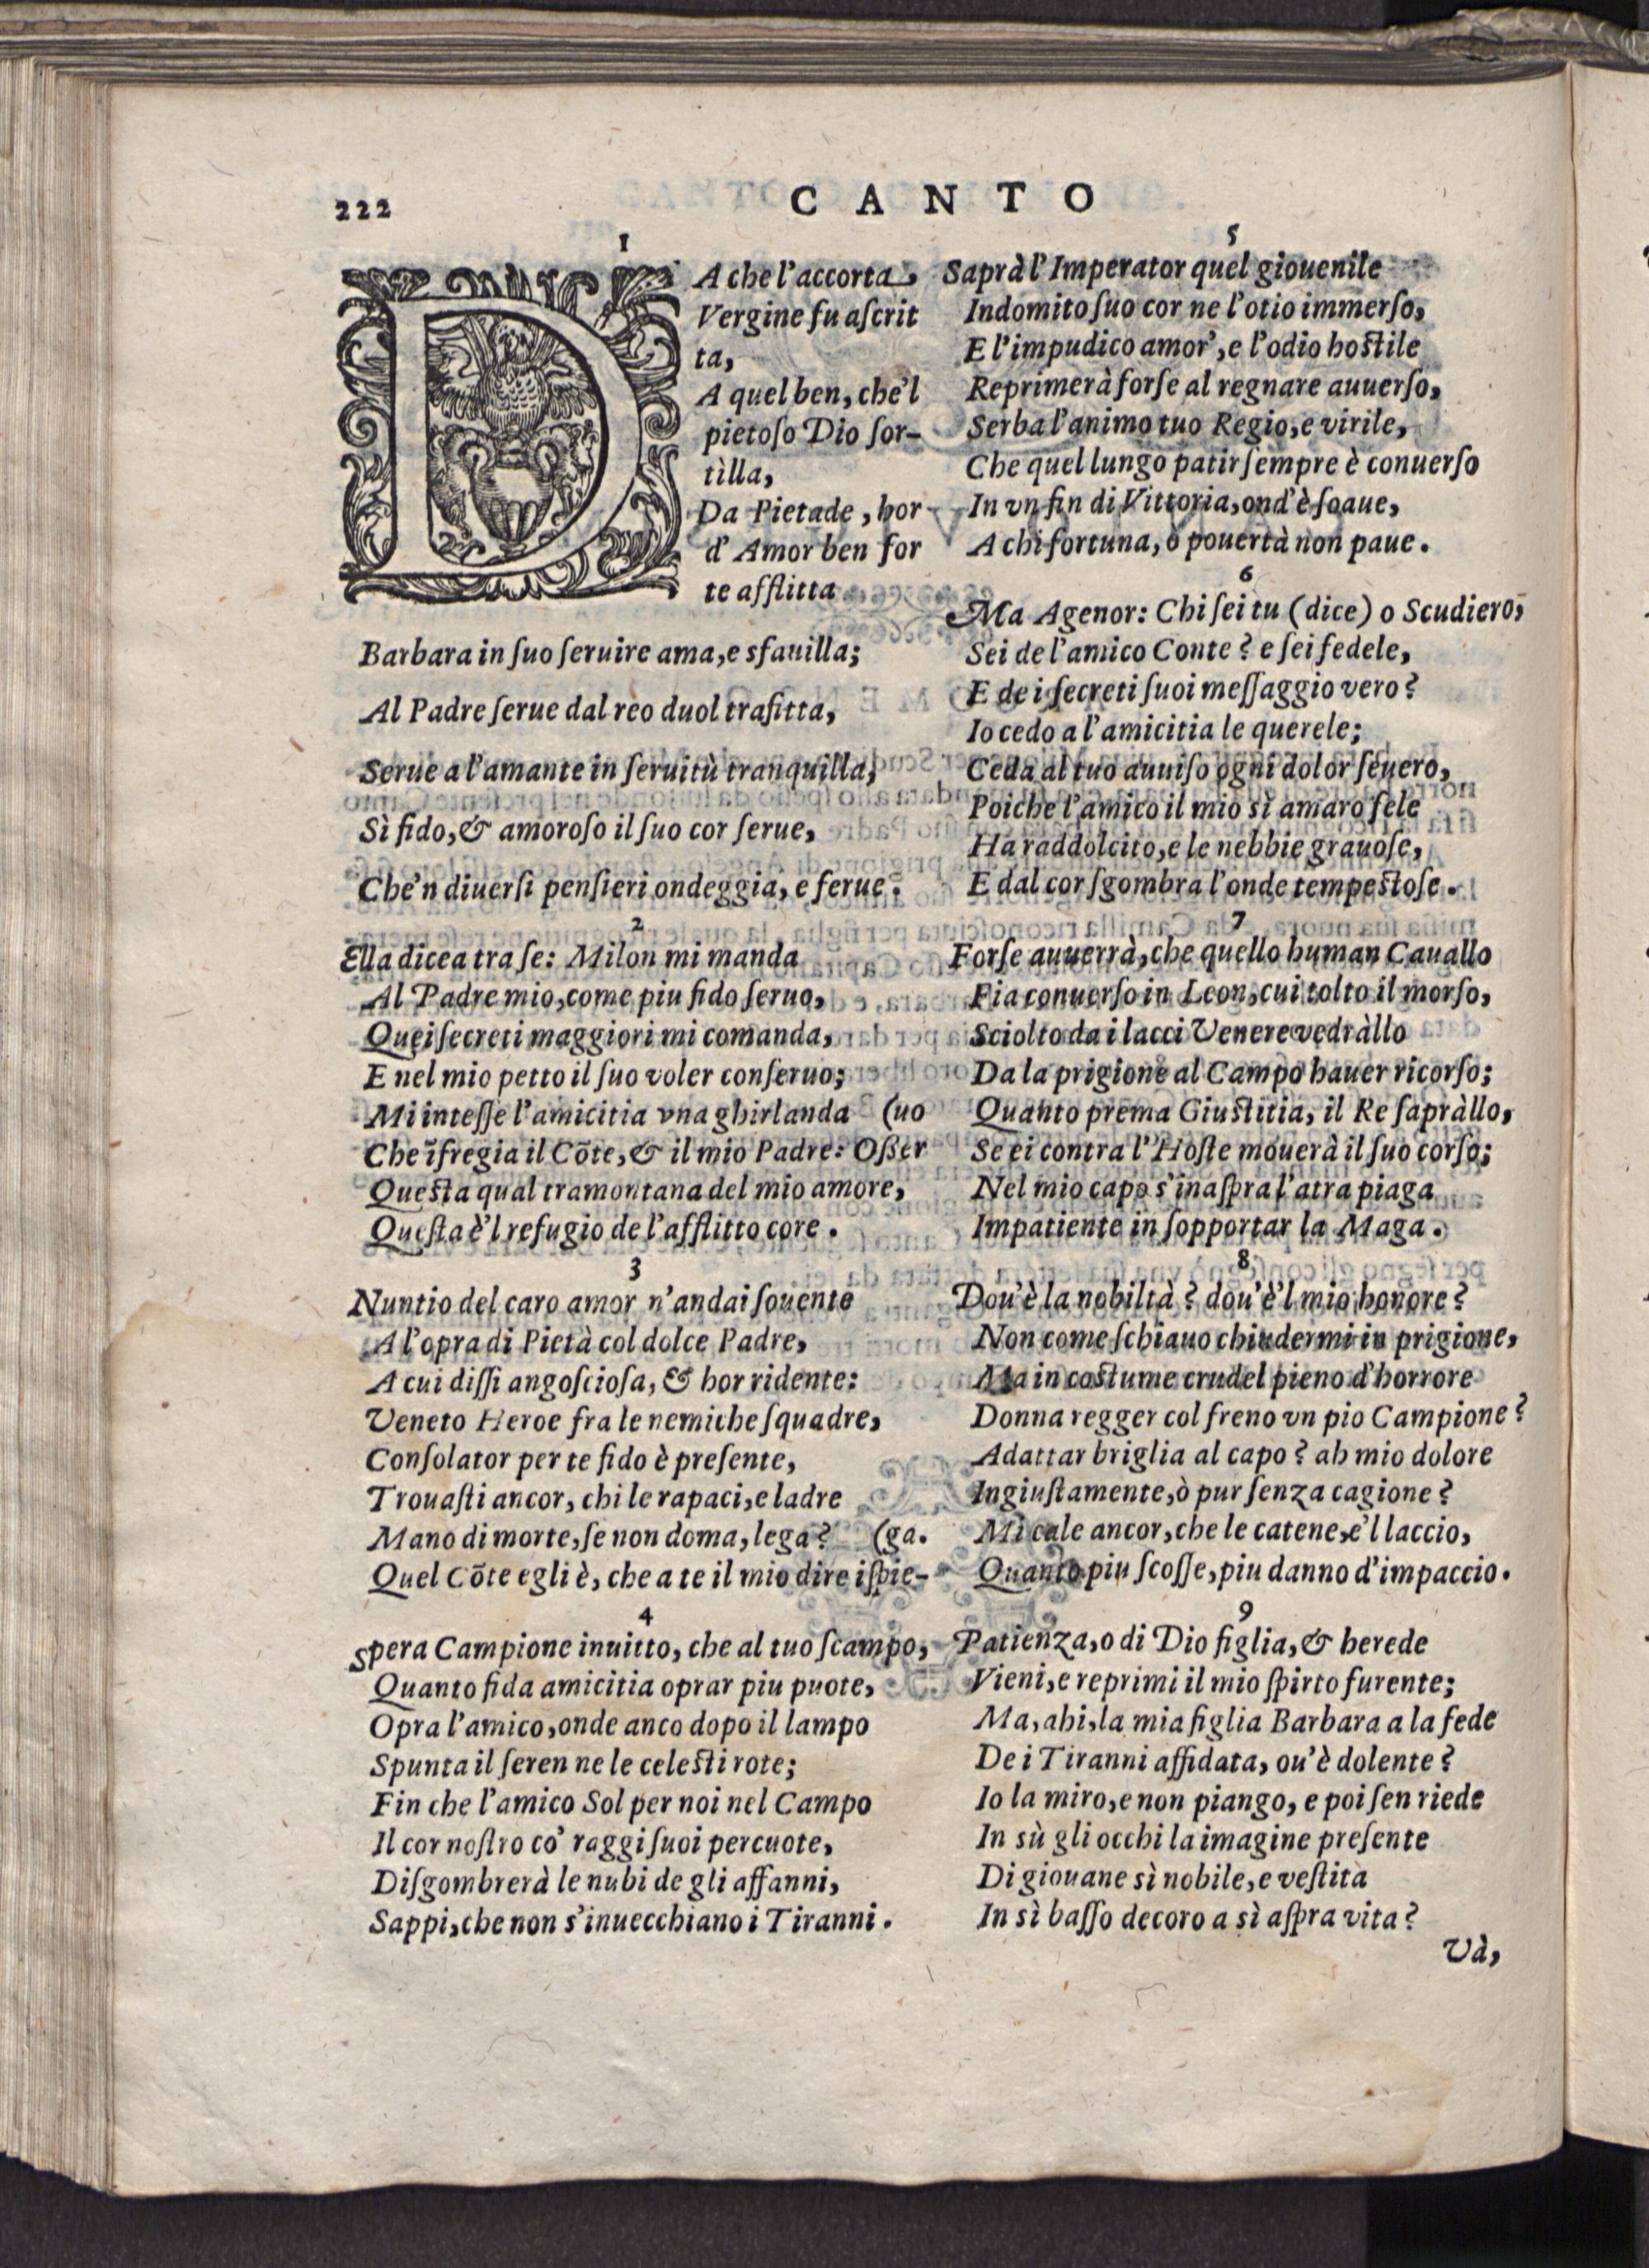 222
CANTO
1
DA che l'accorta
Vergine fu aſcrit
ta,
A quel ben, che'l
pietoſo Dio ſor-
tìlla,
Da Pietade, hor
d'Amor ben for
te afflitta
Barbara in ſuo ſeruire ama, e sfauilla;
Al Padre ſerue dal reo duol trafitta,
Serue a l'amante in ſeruitù tranquilla;
Sì fido, & amoroſo il ſuo cor ſerue,
Che'n diuerſi penſieri ondeggia, e ferue.
2
Ella dicea tra ſe: Milon mi manda
Al Padre mio, come piu fido ſeruo,
Quei ſecreti maggiori mi comanda,
E nel mio petto il ſuo voler conſeruo;
Mi inteſſe l'amicitia vna ghirlanda (uo
Che ĩfregia il Cõte, & il mio Padre: Oßer
Queſta qual tramontana del mio amore,
Queſta è'l refugio de l'afflitto core.
3
Nuntio del caro amor n'andai ſouente
A l'opra di Pietà col dolce Padre,
A cui diſſi angoſcioſa, & hor ridente:
Veneto Heroe fra le nemiche ſquadre,
Conſolator per te fido è preſente,
Trouaſti ancor, chi le rapaci, e ladre
Mano di morte, ſe non doma, lega? (ga.
Quel Cõte egli è, che a te il mio dire iſpie-
4
Spera Campione inuitto, che al tuo ſcampo,
Quanto fida amicitia oprar piu puote,
Opra l'amico, onde anco dopo il lampo
Spunta il ſeren ne le celeſti rote;
Fin che l'amico Sol per noi nel Campo
Il cor noſtro co' raggi ſuoi percuote,
Diſgombrerà le nubi de gli affanni,
Sappi, che non s'inuecchiano i Tiranni.
5
Saprà l'Imperator quel giouenile
Indomito ſuo cor ne l'otio immerſo,
E l'impudico amor', e l'odio hoſtile
Reprimerà forſe al regnare auuerſo,
Serba l'animo tuo Regio, e virile,
Che quel lungo patir ſempre è conuerſo
In vn fin di Vittoria, ond'è ſoaue,
A chi fortuna, o pouertà non paue.
6
Ma Agenor: Chi ſei tu (dice) o Scudiero,
Sei de l'amico Conte? e ſei fedele,
E de i ſecreti ſuoi meſſaggio vero?
Io cedo a l'amicitia le querele;
Ceda al tuo auuiſo ogni dolor ſeuero,
Poiche l'amico il mio sì amaro fele
Ha raddolcito, e le nebbie grauoſe,
E dal cor ſgombra l'onde tempeſtoſe.
7
Forſe auuerrà, che quello human Cauallo
Fia conuerſo in Leon, cui tolto il morſo,
Sciolto da i lacci Venere vedràllo
Da la prigione al Campo hauer ricorſo;
Quanto prema Giuſtitia, il Re ſapràllo,
Se ei contra l'Hoſte mouerà il ſuo corſo;
Nel mio capo s'inaſpra l'atra piaga
Impatiente in ſopportar la Maga.
8
Dou'è la nobiltà? dou'è'l mio honore?
Non come ſchiauo chiudermi in prigione,
Ma in coſtume crudel pieno d'horrore
Donna regger col freno vn pio Campione?
Adattar briglia al capo? ah mio dolore
Ingiuſtamente, ò pur ſenza cagione?
Mi cale ancor, che le catene, e'l laccio,
Quanto piu ſcoſſe, piu danno d'impaccio.
9
Patienza, o di Dio figlia, & herede
Vieni, e reprimi il mio ſpirto furente;
Ma, ahi, la mia figlia Barbara a la fede
De i Tiranni affidata, ou'è dolente?
Io la miro, e non piango, e poi ſen riede
In sù gli occhi la imagine preſente
Di giouane sì nobile, e veſtita
In sì baſſo decoro a sì aſpra vita?
Và,